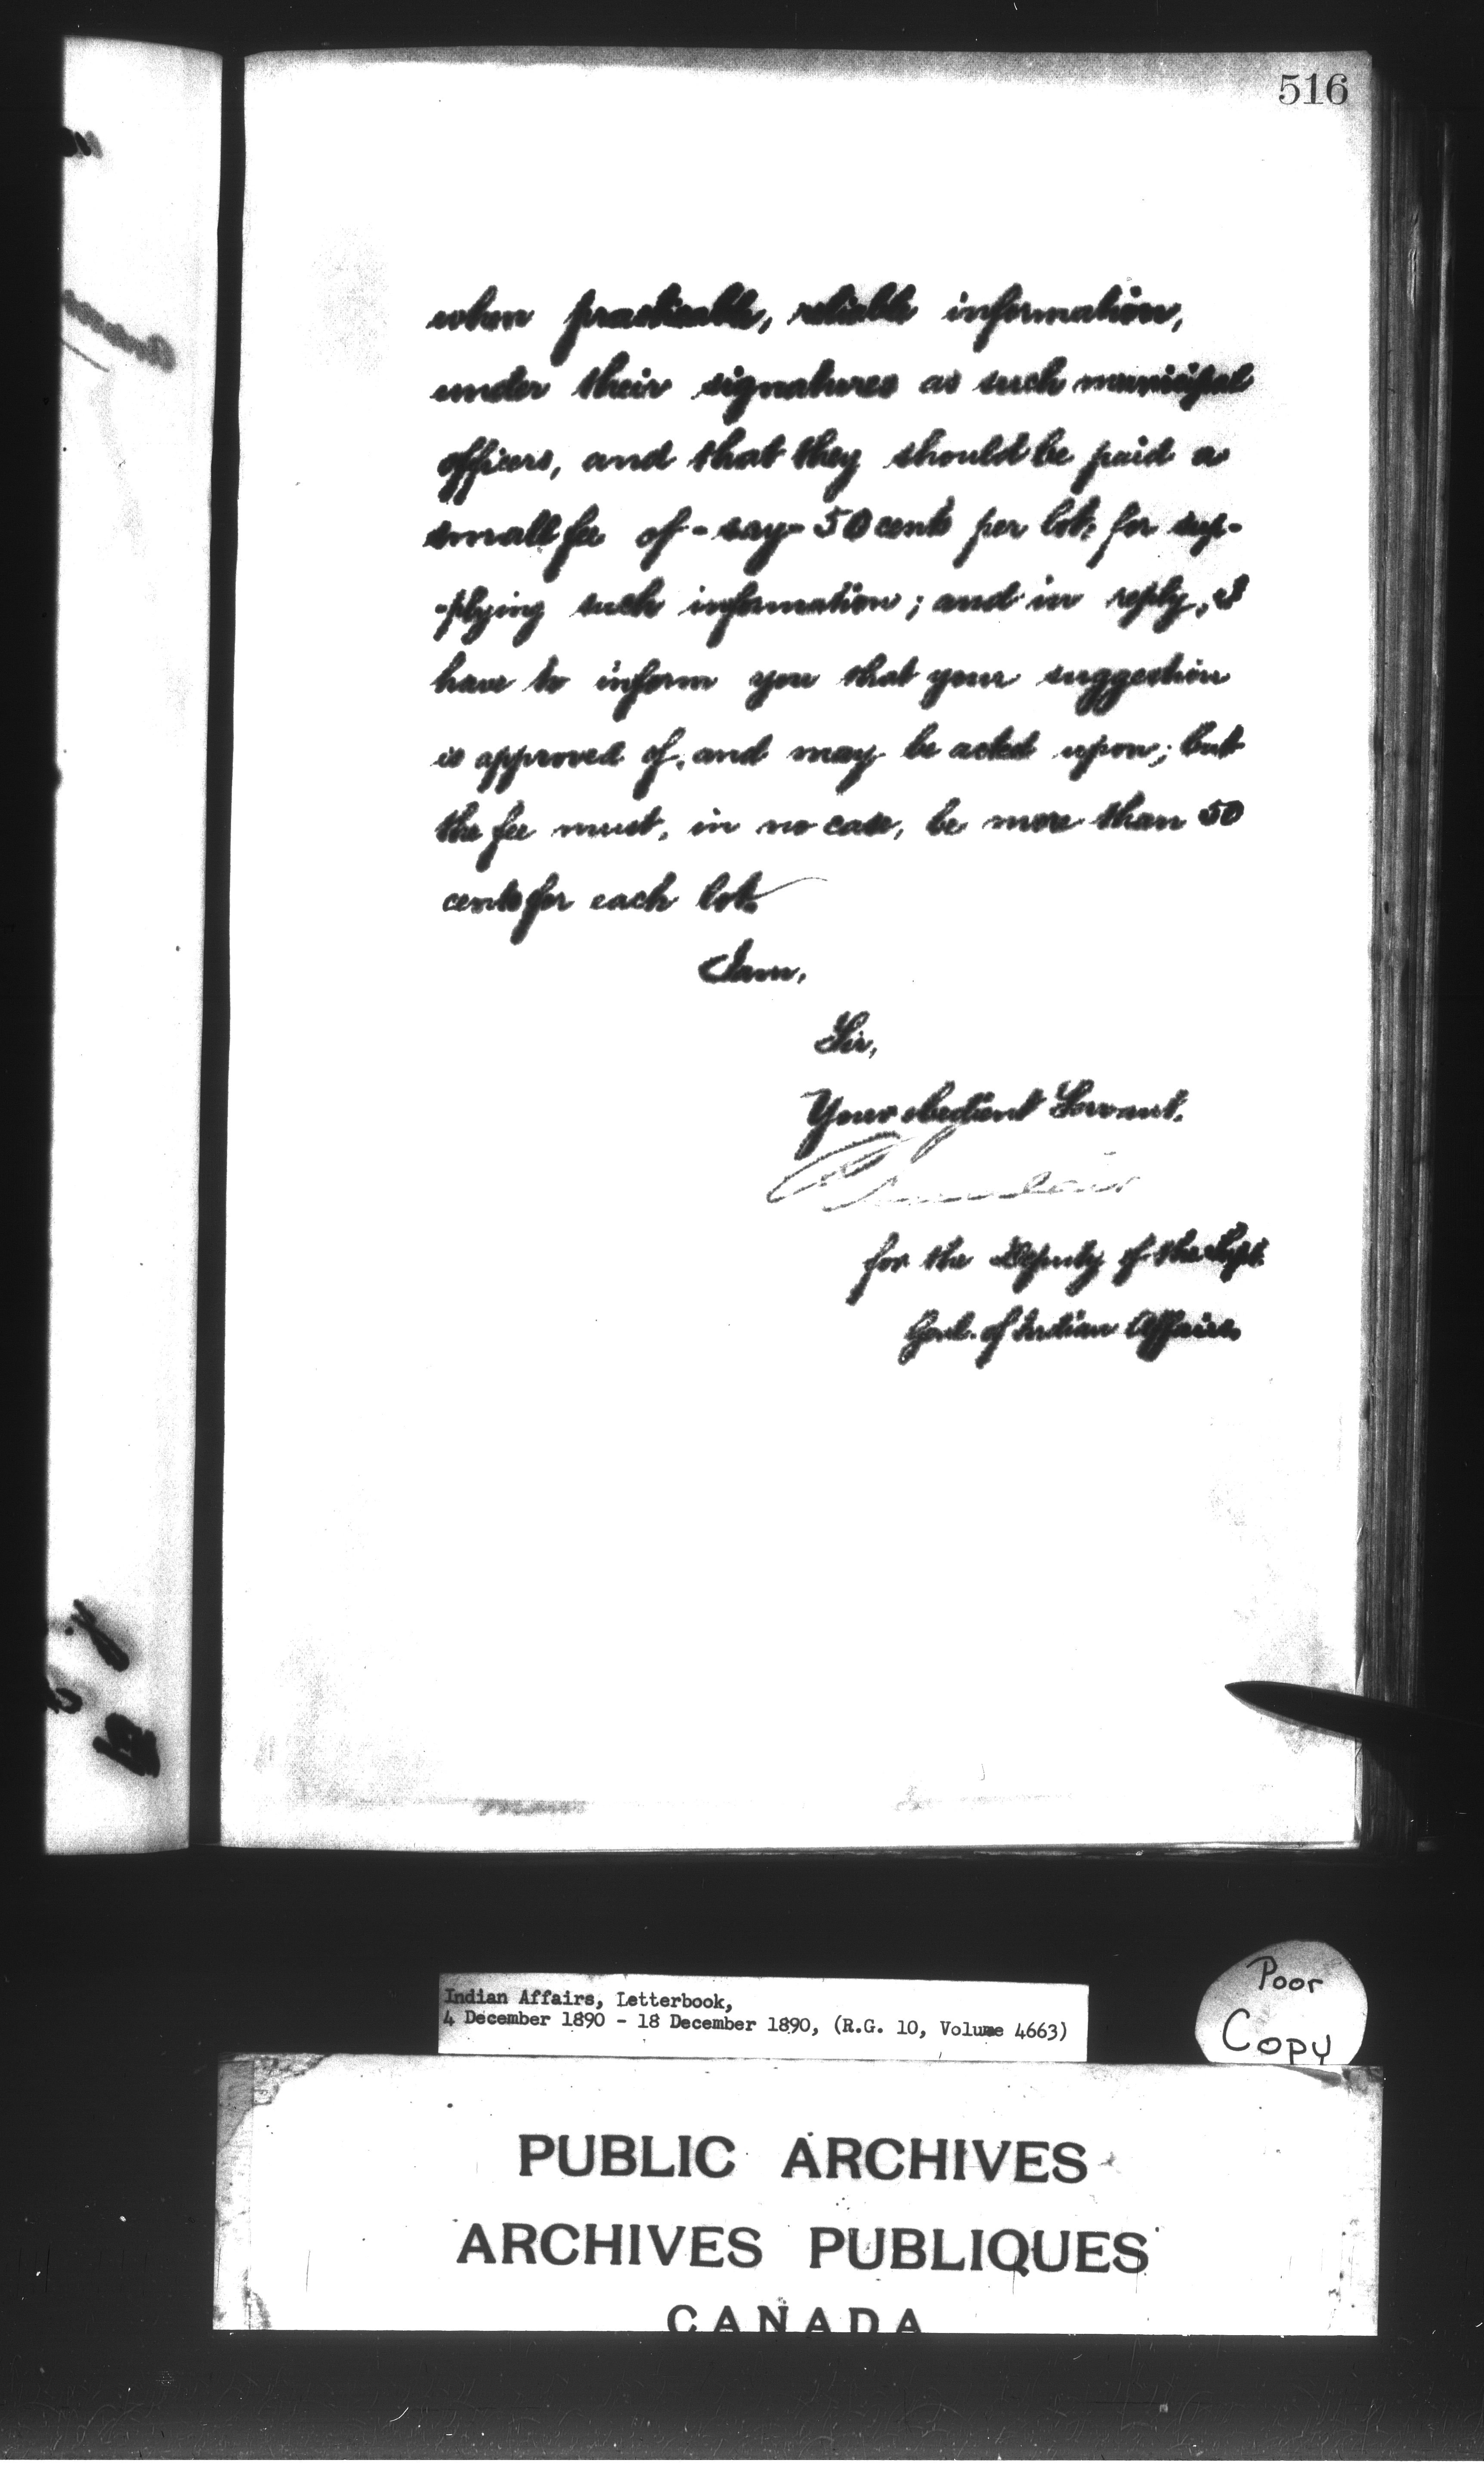 516
when practicable, reliable information,
under their signatures as such municipal
officers, and that they should be paid a
small fee of - say - 50 cents per lot, for sup-
-plying such information; and in reply, I
have to inform you that your suggestion
is approved of, and may be acted upon; but
the fee must, in no case, be more than 50
cents for each lot.
I am,
Sir,
Your obedient Servant.
for the Deputy of the Supt.
Genl. of Indian Affairs
Indian Affairs, Letterbook,
4 December 1890 - 18 December 1890, (R.G. 10, Volume 4663)
Poor
Copy
PUBLIC ARCHIVES
ARCHIVES PUBLIQUES
CANADA